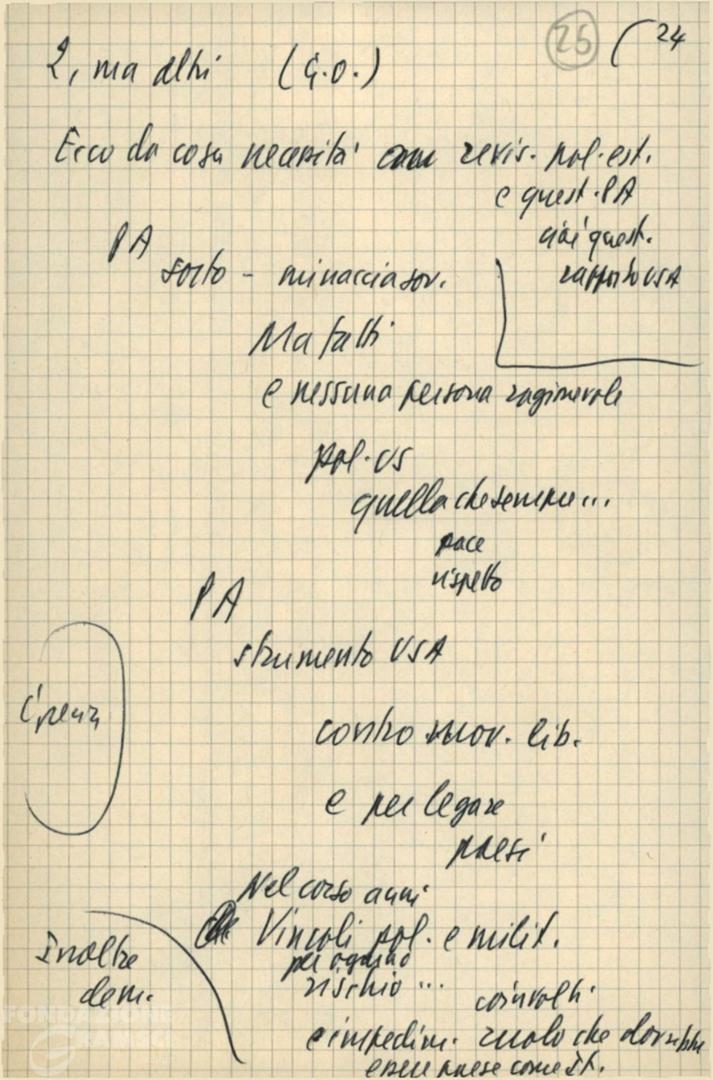 26 24
2, ma altri (G.O.)
Ecco da cosa necessità revis. pol. est.
e quest. PA
cioè quest.
rapporto USA
PA
sorto - minaccia sov.
Ma fatti
e nessuna persona ragionevole
pol. US
quella che sempre...
pace
rispetto
PA
strumento USA
contro mov. lib.
e per legare
paesi
Nel corso anni
Vincoli pol. e milit.
per ognuno
rischio ... coinvolti
e impedim. ruolo che dovrebbe
essere paese come It.
Inoltre
dem.
FONDAZIONE